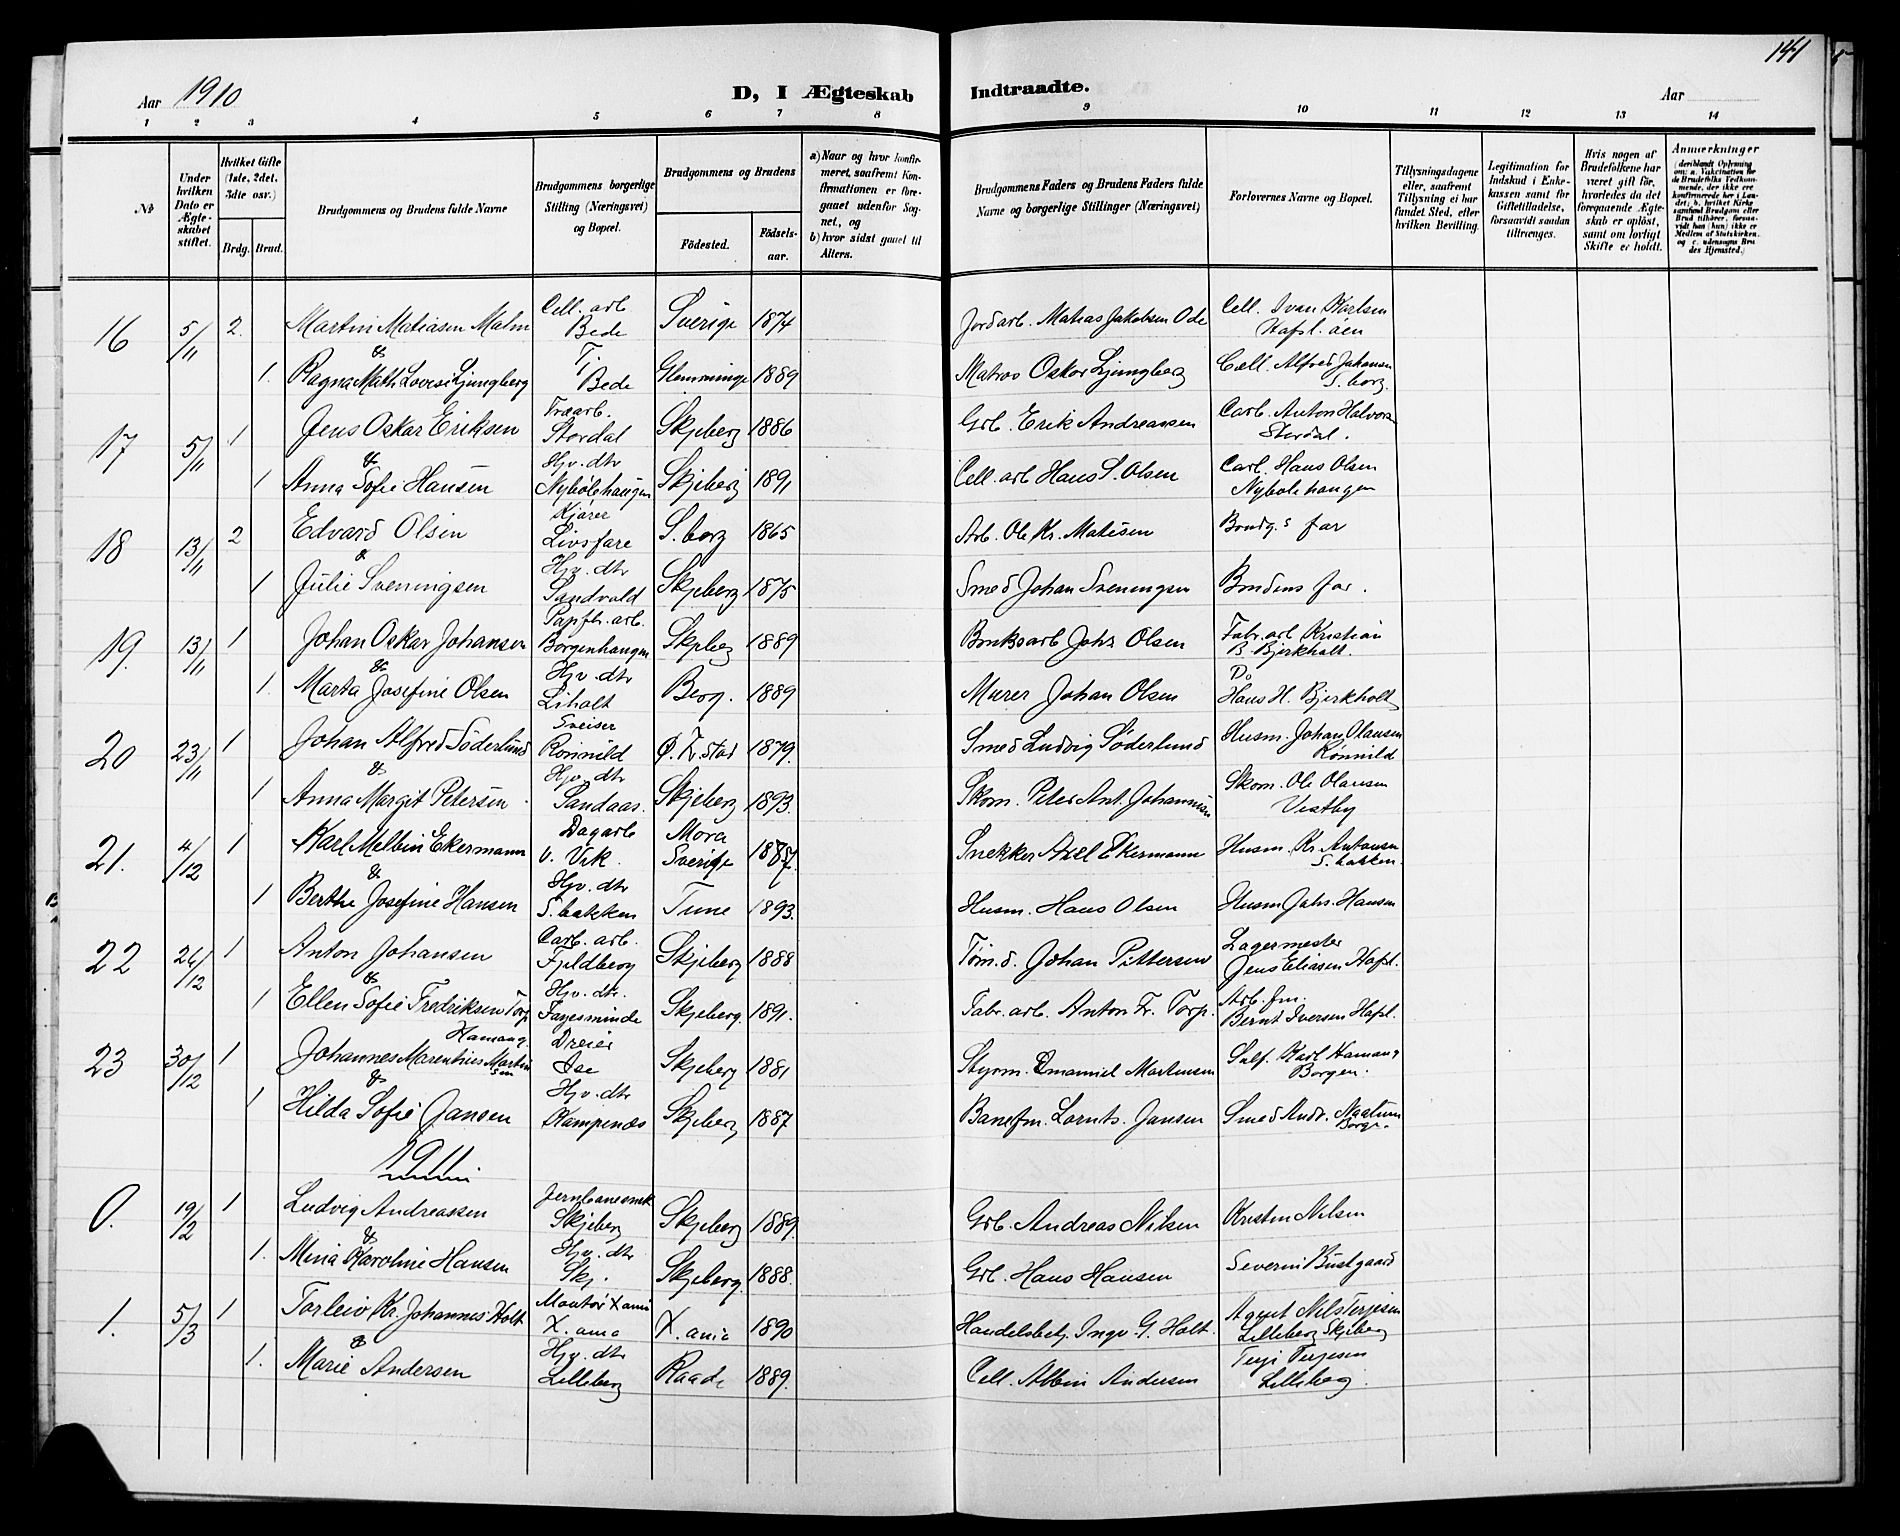 141
Aar 1910
D, I Ægteskab Indtraadte.
Aar
1 2 3 4 5 6 7 8 9 10 11 12 13 14
№
Under hvilken Dato er Ægteskabet stiftet.
Hvilket Gifte (1ste, 2det, 3die osv.)
Brdg. Brud.
Brudgommens og Brudens fulde Navne
Brudgommens borgerlige Stilling (Næringsvei) og Bopæl.
Brudgommens og Brudens
Födested.
Födselsaar.
a) Naar og hvor konfirmeret, saafremt Konfirmationen er foregaaet udenfor Sognet, og
b) hvor sidst gaaet til Alters.
Brudgommens Faders og Brudens Faders fulde Navne og borgerlige Stillinger (Næringsvei)
Forlovernes Navne og Bopæl.
Tillysningsdagene eller, saafremt Tillysning ei har fundet Sted, efter hvilken Bevilling.
Legitimation for Indskud i Enkekassen samt for Giftetilladelse, forsaavidt saadan tiltrænges.
Hvis nogen af Brudefolkene har været gift för, hvorledes da det foregaaende Ægteskab er oplöst, samt om lovligt Skifte er holdt.
Anmærkninger
16 5/11 2. Martin Matiasen Malm Cell. arb. Bede Sverige 1874 Jordarb. Matias Jakobsen Ode Cell. Ivan Karlsen Hafsl. aen
& 1. Ragna Math. Lovise Ljungberg T. Bede Glemminge 1889 Matros Oskar Ljungberg Cell. Alfred Johansen S.borg.
17 5/11 1 Jens Oskar Eriksen Træarb. Stordal Skjeberg 1886 Grb. Erik Andreassen Carb. Anton Halvors Stordal.
& 1 Anna Sofie Hansen Hjv. dtr Nybølehaugen Skjeberg 1891 Cell. arb Hans S. Olsen Carb. Hans Olsen Nybølehaugen
18 13/11 2 Edvard Olsen Kjører Livsfare S.borg 1865 Arb. Ole Kr. Matisen Brudg.s far
& 1 Julie Sveningsen Hjv. dtr Sandvold Skjeberg 1875 Smed Johan Sveningsen Brudens far.
19. 13/11 1 Johan Oskar Johansen Papfb. arb. Borgenhaugen Skjeberg 1889 Bruksarb Johs Olsen Fabr. arb Kristian B. Bjerkholt.
& 1. Marta Josefine Olsen Hjv. dtr Liholt Berg. 1889 Murer Johan Olsen Do Hans H. Bjerkholt
20 23/11 1 Johan Alfred Søderlund Sveiser Rønnild Ø. F.stad 1879. Smed Ludvig Søderlund Husm. Johan Olausen Rønnild
& 1 Anna Margit Petersen Hjv. dtr Sandaas. Skjeberg 1893. Skom. Peter Ant. Johannesen Skom. Ole Olausen Vestby
21. 4/12 1 Karl Melbin Ekermann Dagarb v. Vik. Mora Sverige 1887. Snekker Axel Ekermann Husm. Kr. Antonsen S.bakken.
& 1 Berthe Josefine Hansen Hjv. dtr. S.bakken Tune 1893. Husm. Hans Olsen Husm Johs. Hansen
22 26/12 1 Anton Johansen Carb. arb. Fjeldberg Skjeberg 1888 Tøm.d. Johan Pittersen Lagermester Jens Eliasen Hafsl.
& 1 Ellen Sofie Fredriksen Torp Hjv. dtr. Fagesminde Skjeberg. 1891. Fabr. arb. Anton Fr. Torp. Arb. fm. Bernt Iversen Hafsl.
23 30/12 1 Johannes Marentius Martinsen Hamang. Dreier Ise Skjeberg 1881 Styrm. Emanuel Martinsen Sulf. Karl Hamang Borgen.
& 1 Hilda Sofie Jansen Hjv. dtr Kampenæs Skjeberg 1887 Banefm. Lornts. Jansen Smed Andr. Naalum Borge.
1911
0. 19/2 1 Ludvig Andreassen Jernbanesnek Skjeberg Skjeberg 1889. Grb. Andreas Nilsen Kristen Nilsen
& 1. Mina Karoline Hansen Hjv. dtr Skj. Skjeberg. 1888. Grb. Hans Hansen Severin Bustgaard
1. 5/3 1 Torleiv Kr. Johannes Holt Montør X.ania X. ania X. ania 1890 Handelsbetj. Ingv. G. Holt. Agent Nils Terjesen Lilleberg Skjeberg
& 1. Marie Andersen Hjv. dtr Lilleberg Raade 1889. Cell. Albin Andersen Terje Terjesen Lilleberg.